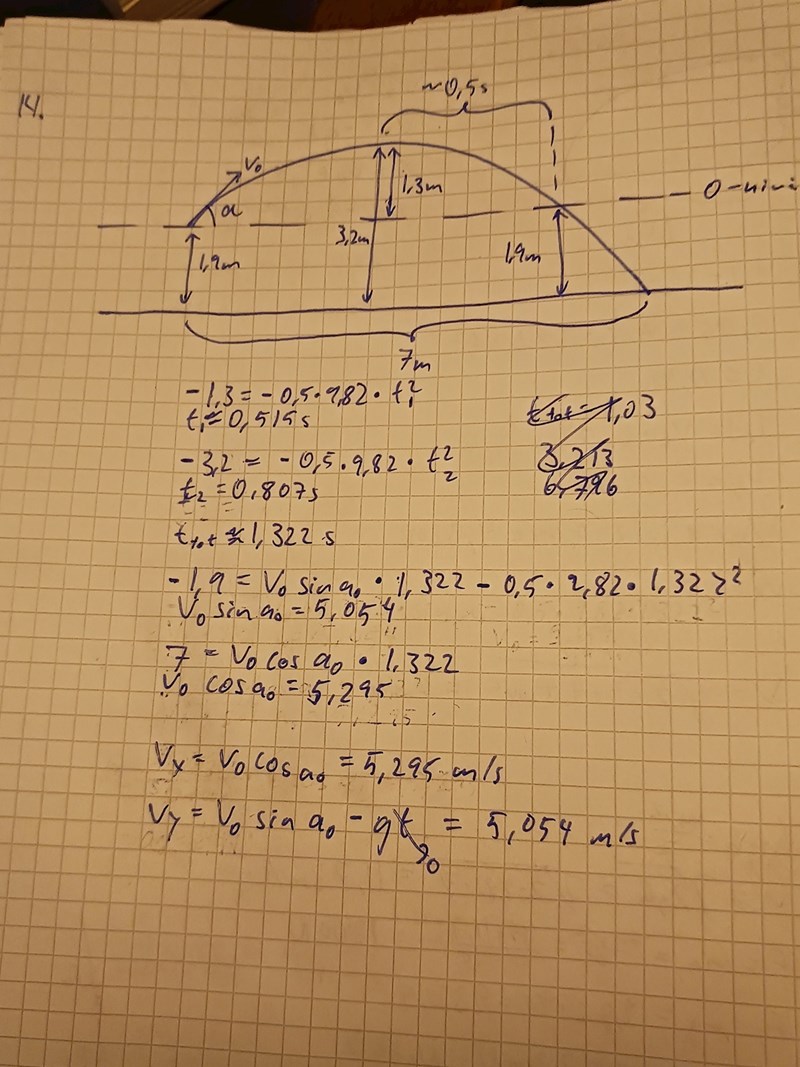 14.
~0,5s
v₀
α
1,3m
0-nivå
3,2m
1,9m
1,9m
7m
-1,3 = -0,5·9,82·t₁²
t₁≈0,515s
-3,2 = -0,5·9,82·t₂²
t₂=0,807s
t_tot ≈ 1,322 s
t_tot = 1,03
3,213
-1,9 = V₀ sin a₀ · 1,322 - 0,5·9,82·1,322²
V₀ sin a₀ = 5,054
7 = V₀ cos a₀ · 1,322
V₀ cos a₀ = 5,295
Vx = V₀ cos a₀ = 5,295 m/s
Vy = V₀ sin a₀ - gt = 5,054 m/s
0